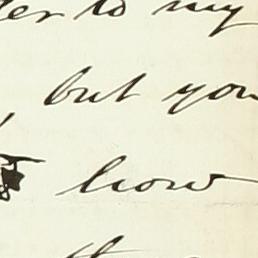 to my
but you
how